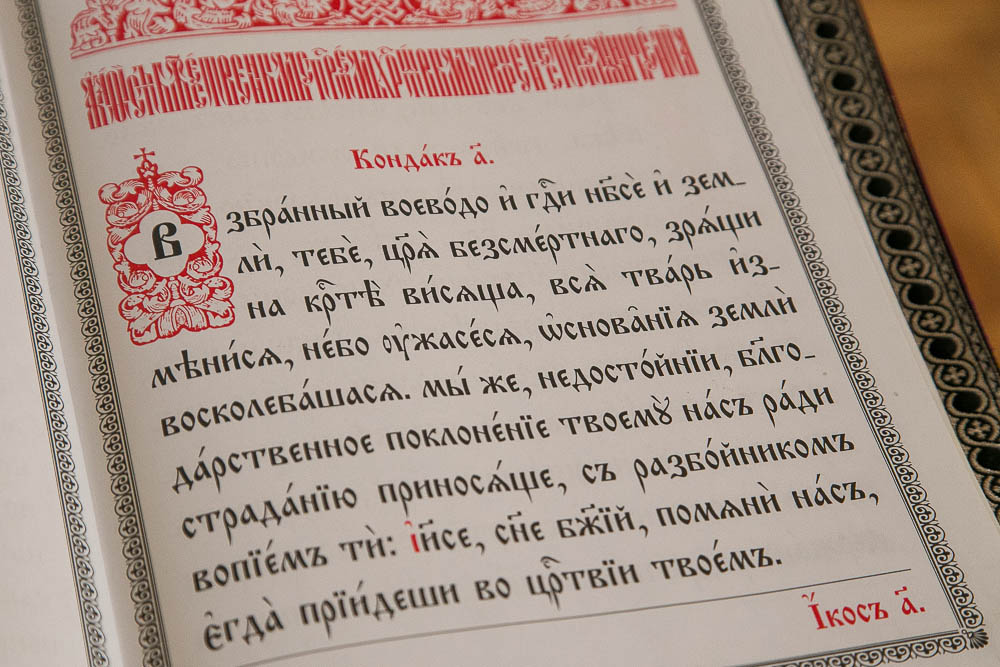 Конда́къ а҃.
Взбра́нный воево́до и҆ гдⷭ҇и нб҃сѐ и҆ зем-
лѝ, тебѐ, цр҃ѧ̀ безсме́ртнаго, зрѧ́щи
на крⷭ҇тѣ̀ ви́сѧща, всѧ̀ тва́рь и҆з-
мѣни́сѧ, не́бо ᲂу҆жасе́сѧ, ѡ҆снова̑нїѧ землѝ
восколеба́шасѧ. мы́ же, недосто́йнїи, бл҃го-
да́рственное поклоне́нїе твоемꙋ̀ на́съ ра́ди
страда́нїю приносѧ́ще, съ разбо́йникомъ
вопїе́мъ тѝ: і҆и҃се, сн҃е бж҃їй, помѧнѝ на́съ,
є҆гда̀ прїи́деши во црⷭ҇твїи твое́мъ.
І҆́косъ а҃.